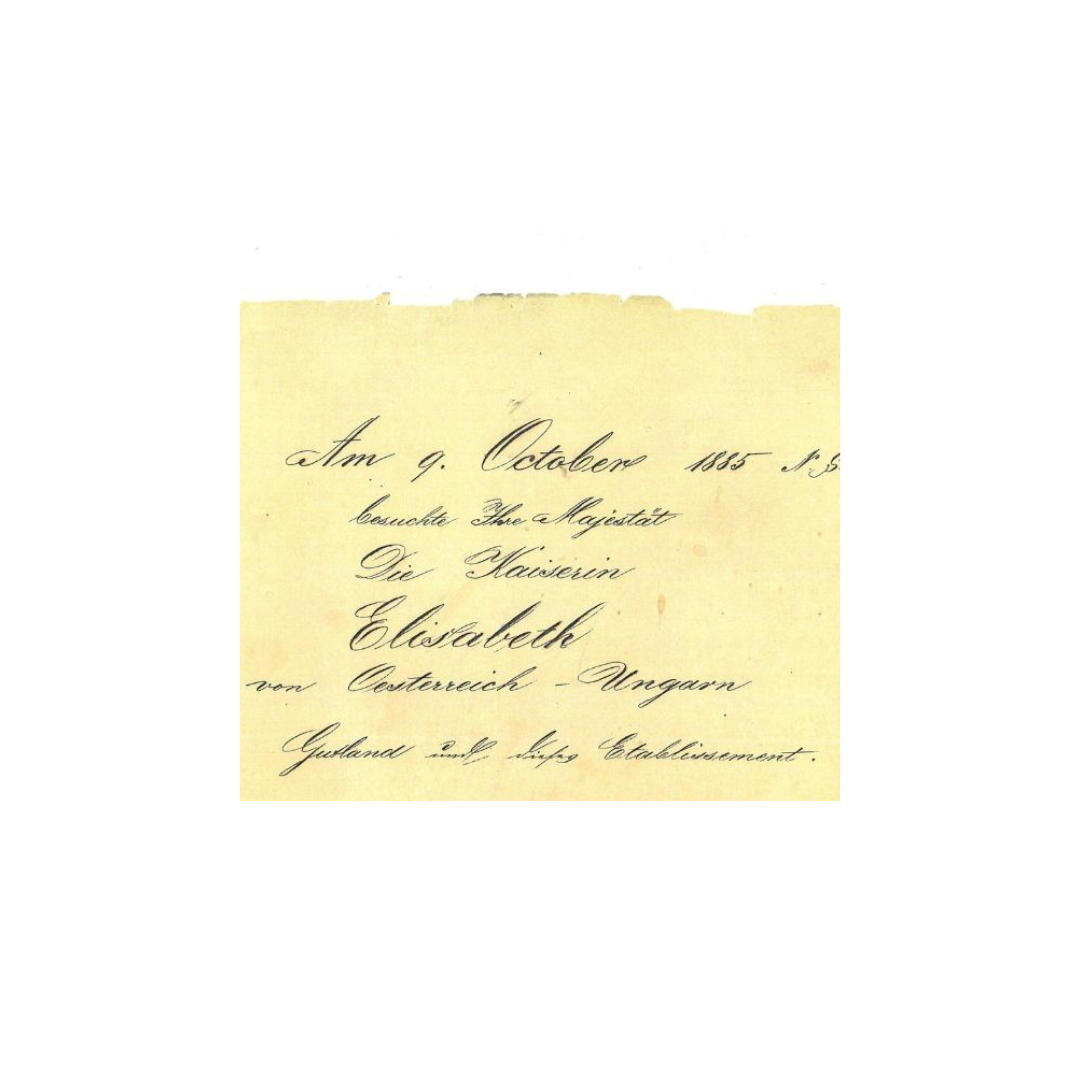 Am 9. October 1885 N. S.
besuchte Ihre Majestät
Die Kaiserin
Elisabeth
von Oesterreich - Ungarn
und dieses Etablissement.